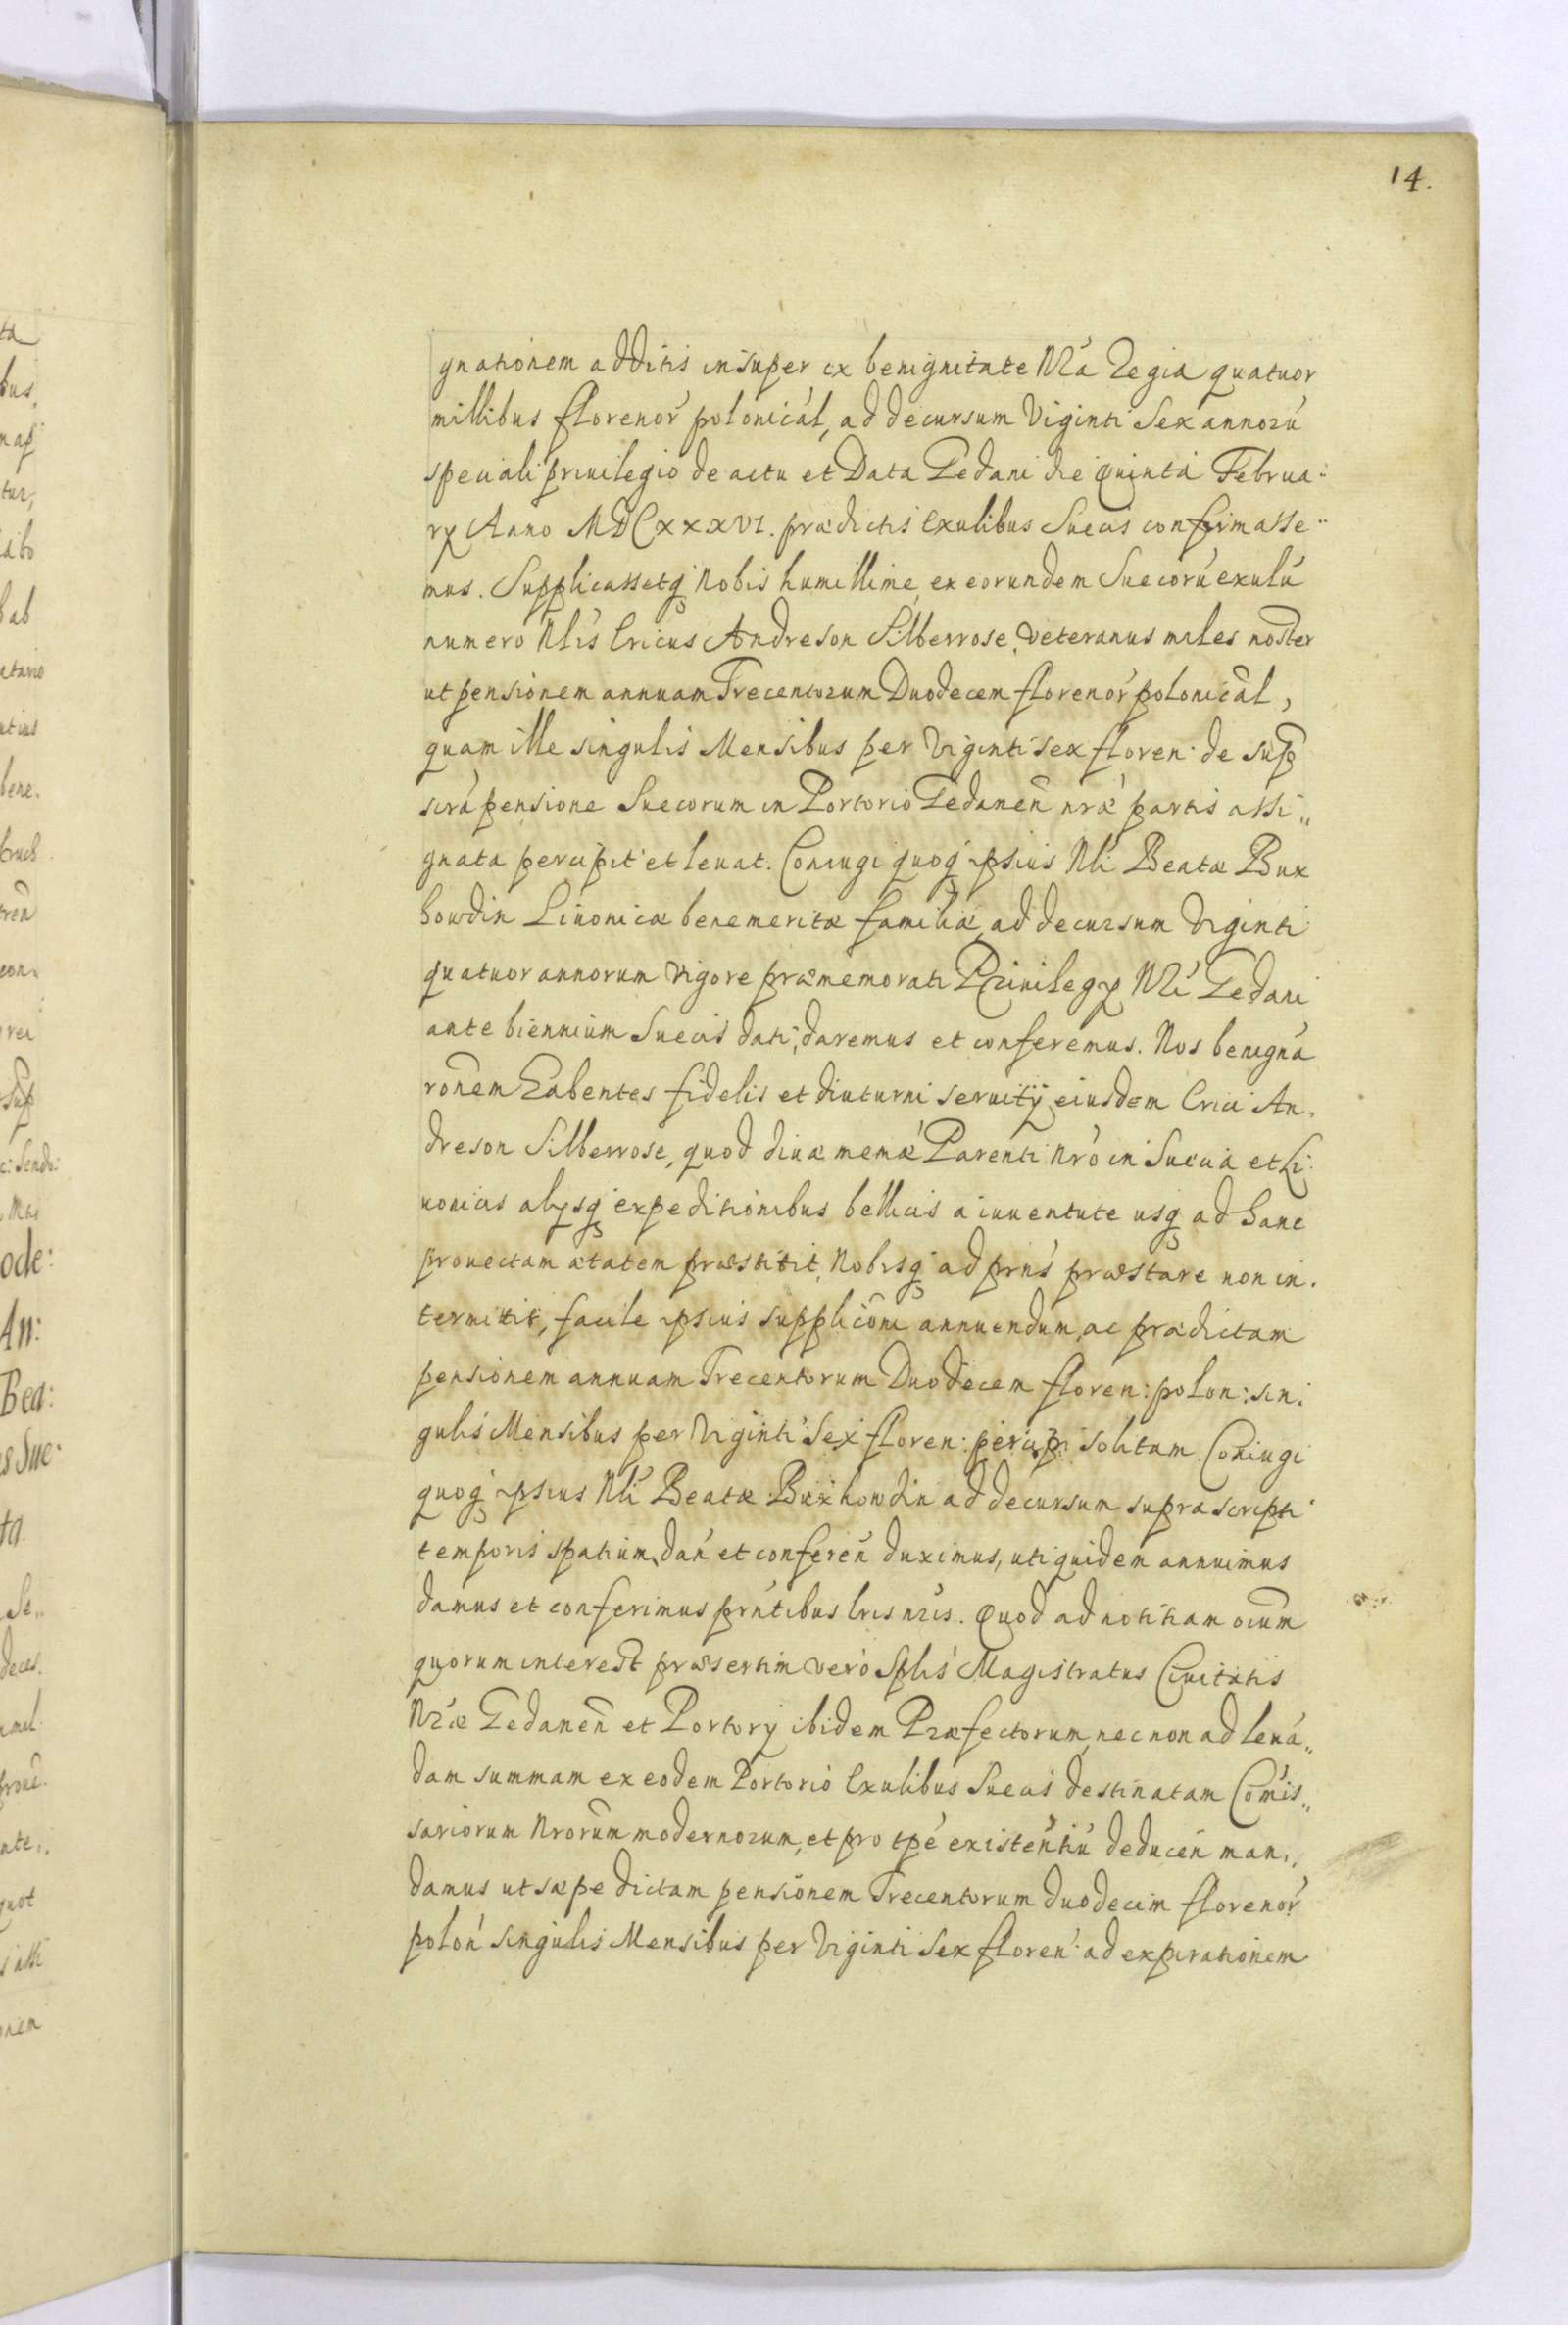 14.
gnationem additis insuper ex benignitate Nrá Regia quatuor
millibus florenor̃ polonicál, ad decursum Viginti Sex annorú
speciali priuilegio de actu et Data Gedani die Quintá Februa:
ry Anno MDCXXXVI. prædictis Exulibus Suecis confirmasse¨
mus. Supplicassetq́ Nobis humillime, ex eorundem Suecorú exulú
numero Nlis Ericus Andreson Silberrose, Veteranus miles noster
ut pensionem annuam Trecentorum Duodecem florenor̃ polonicál,
quam ille singulis Mensibus per Viginti sex floren: de sup̃
scrá pensione Suecorum in Portorio Gedaneñ nræ partis assi„
gnata percipit et leuat. Coniugi quoq́ ipsius Nli Beatæ Bux
howdin Liuonicæ benemeritæ familiæ, ad decursum Viginti
quatuor annorum vigore præmemorati Priuilegy Nri Gedani
ante biennium Suecis dati, daremus et conferemus. Nos benigná
ronem habentes fidelis et diuturni seruitÿ eiusdem Erici An.
dreson Silberrose, quod diuæ memæ Parenti Nro in Sueciá et Li:
uonicis alysq́ expeditionibus bellicis a iuuentute usq́ ad hanc
prouectam ætatem præstitit, Nobisq́ ad prñs præstare non in.
termittit, facile ipsius supplicõni annuendum, ac prædictam
pensionem annuam Trecentorum Duodecem floren: polon: sin:
gulis Mensibus per Viginti Sex floren: percipi solitam Coniugi
quoq́ ipsius Nli Beatæ Buxhowdin ad decursum suprascripti
temporis spatium, dañ et confereñ duximus, uti quidem annuimus
damus et conferimus prñtibus lris nris. Quod ad notitiam oĩum
quorum interest præsertim vero Splis Magistratus Ciuitatis
Nræ Gedaneñ et Portory ibidem Præfectorum, nec non ad leuá„
dam summam ex eodem Portorio Exulibus Suecis destinatam Com̃is„
sariorum Nrorum modernorum, et pro tpé existentiú deduceñ man„
damus ut sæpe dictam pensionem Trecentorum duodecim florenor̃
poloñ singulis Mensibus per Viginti Sex floren: ad expirationem